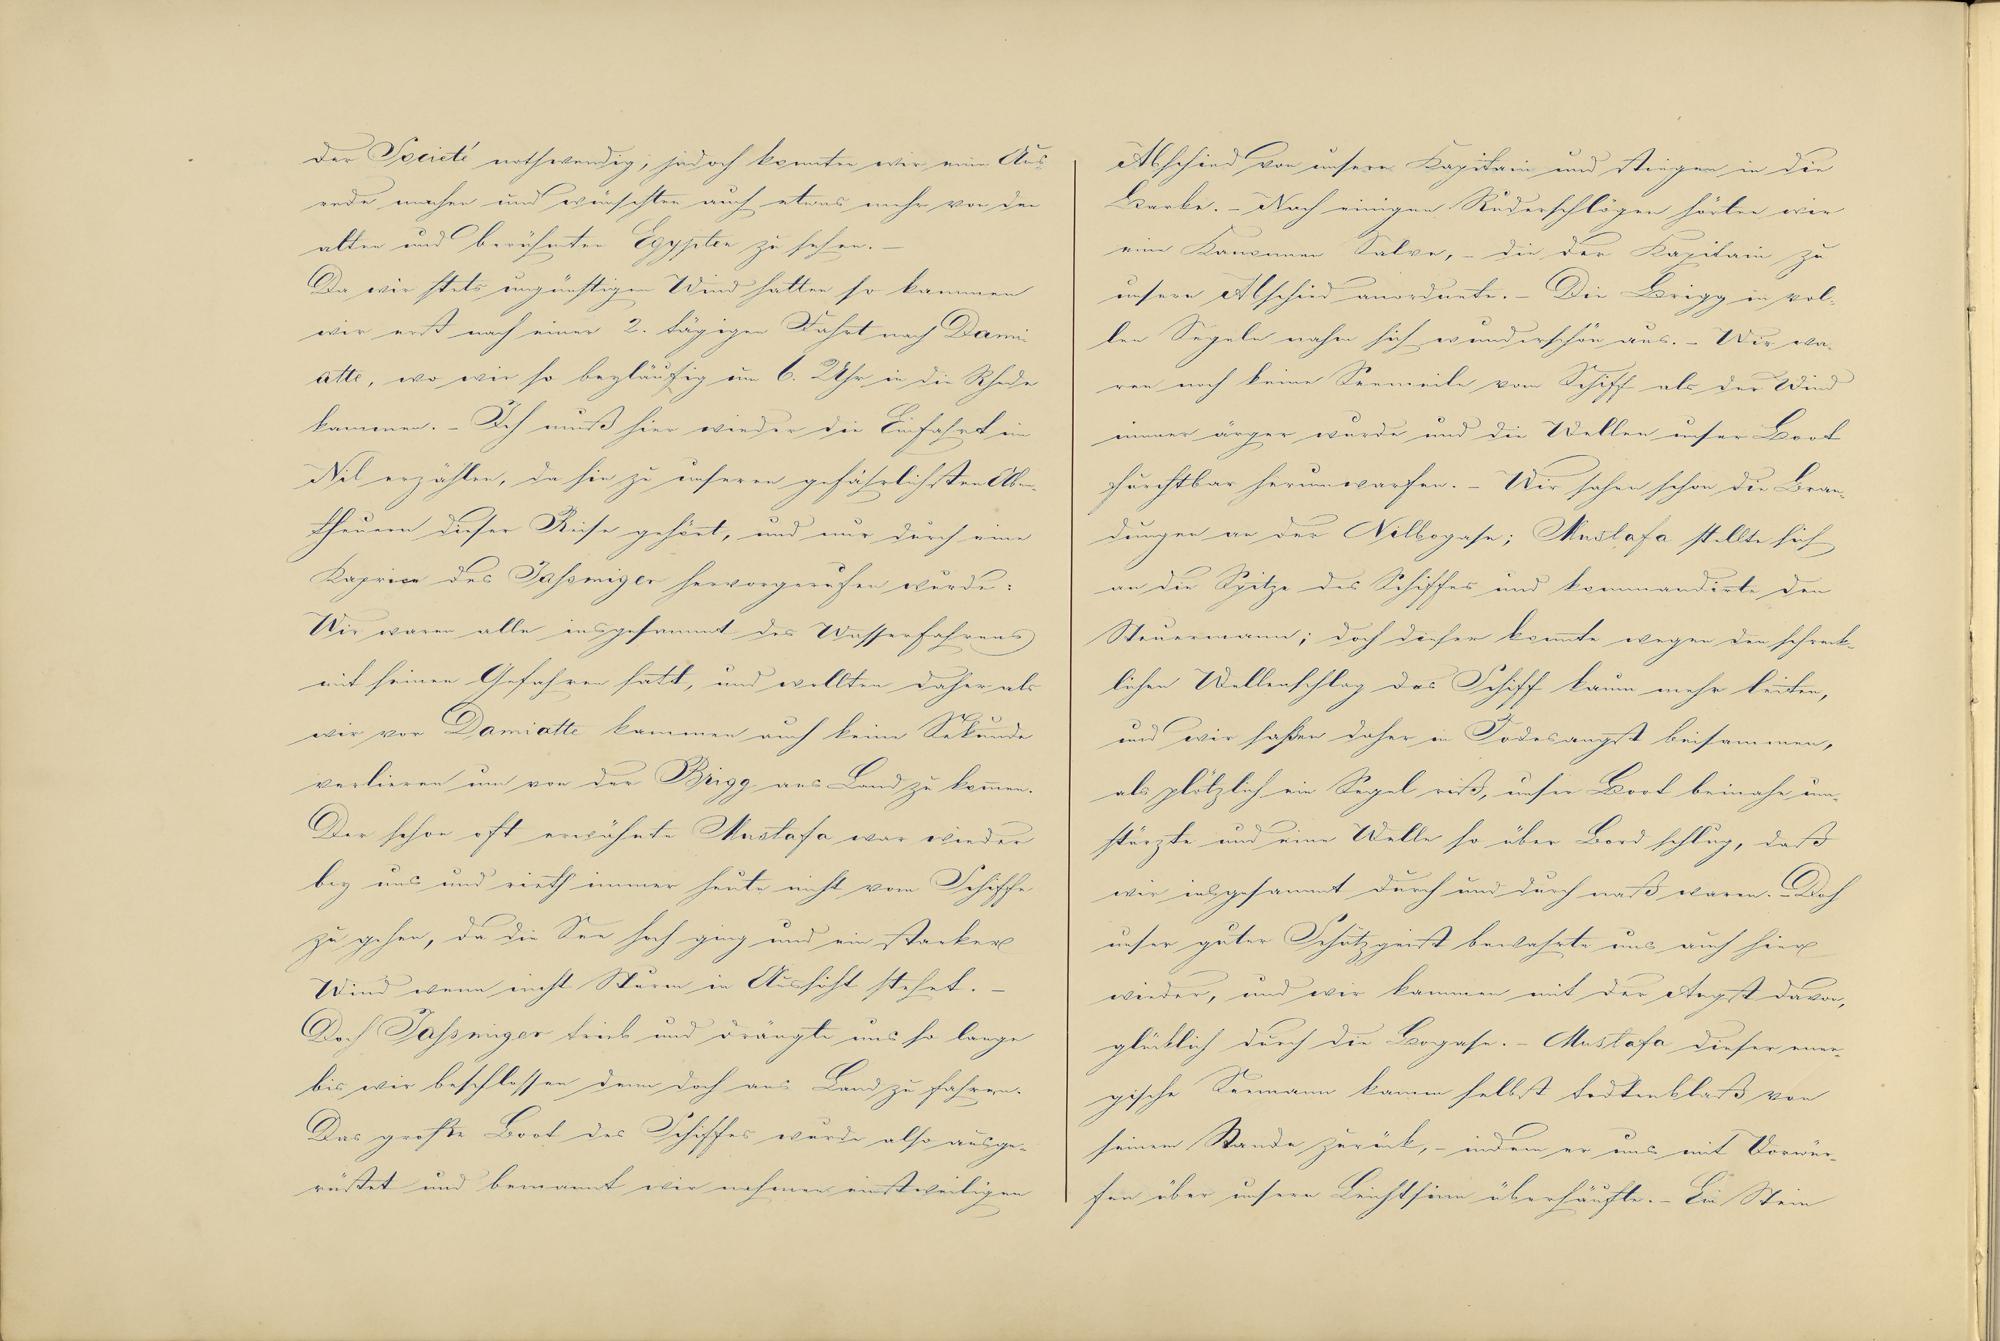 der Societé nothwendig; jedoch konnten wir eine Aus-
rede machen und wünschten auch etwas mehr von den
alten und berühmten Egypten zu sehen. –
Da wir stets ungünstigen Wind hatten so kammen
wir erst nach einer 2. tägigen Fahrt nach Dami-
atte, wo wir so beyläufig um 6. Uhr in die Rhede
kammen. – Ich muß hier wieder die Einfahrt im
Nil erzählen, da sie zu unseren gefährlichsten Aben-
theuern dieser Reise gehört, und nur durch eine
Kaprice des Jassniger hervorgerufen wurde:
Wir waren alle insgesammt des Wasserfahrens
mit seinen Gefahren satt, und wollten daher als
wir vor Damiatte kammen auch keine Sekunde
verlieren um von der Brigg ans Land zu kom̄en.
Der schon oft erwähnte Mustafa war wieder
bey uns und rieth immer heute nicht vom Schiffe
zu gehen, da die See hoch ging und ein starker
Wind wenn nicht Sturm in Aussicht stehet. –
Doch Jassniger trieb und drängte uns so lange
bis wir beschlossen denn doch ans Land zu fahren.
Das große Boot des Schiffes wurde also ausge-
rüstet und bemannt wir nahmen einstweiligen
Abschied von unseren Kapitain und stiegen in die
Barke. – Nach einigen Ruderschlägen hörten wir
eine Kanonen Salve, – die der Kapitain zu
unsern Abschied anordnete. – Die Brigg in vol-
len Segeln nahm sich wunderschön aus. – Wir wa-
ren noch keine Seemeile vom Schiff als der Wind
immer ärger wurde und die Wellen unser Boot
furchtbar herumwarfen. – Wir sahen schon die Bran-
dungen an der Nilbogase; Mustafa stellte sich
an die Spitze des Schiffes und kommandirte den
Steuermann; doch dieser konnte wegen den schreck-
lichen Wellenschlag das Schiff kaum mehr leiten,
und wir saßen daher in Todesangst beisammen,
als plötzlich ein Segel riß, unser Boot beinahe um-
stürzte und eine Welle so über Bord schlug, daß
wir insgesammt durch und durch naß waren. – Doch
unser guter Schutzgeist bewahrte uns auch hier
wieder, und wir kammen mit der Angst davon,
glücklich durch die Bogase. – Mustafa dieser ener-
gische Seemann kamm selbst todtenblaß von
seinem Stande zurück, – indem er uns mit Vorwür-
fen über unsern Leichtsinn überhäufte. – Ein Stein